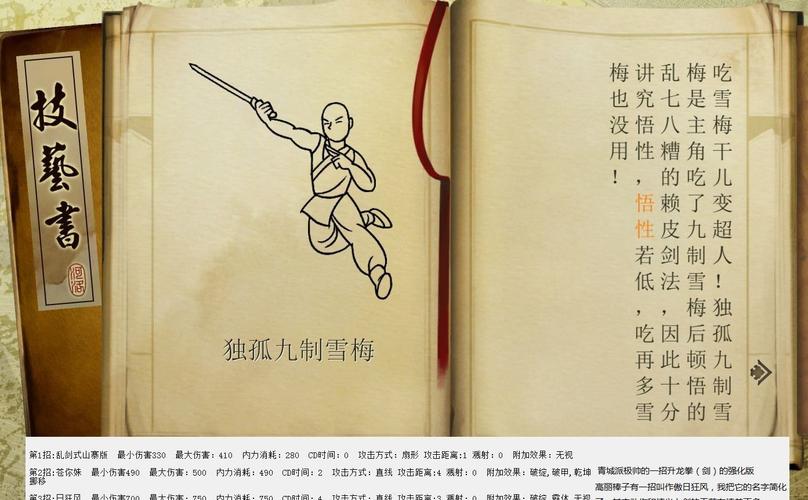 技藝書
河洛
独孤九制雪梅
吃雪梅干儿变超人！独孤九制雪
梅是主角吃了九制雪梅后顿悟的
乱七八糟的赖皮剑法，因此十分
讲究悟性，悟性若低，吃再多雪
梅也没用！
第1招:乱剑式山寨版 最小伤害330 最大伤害：410 内力消耗：280 CD时间：0 攻击方式：扇形 攻击距离:1 溅射：0 附加效果：无视
第2招:苍你姝 最小伤害490 最大伤害：500 内力消耗：490 CD时间：2 攻击方式：直线 攻击距离:4 溅射：0 附加效果：破绽,破甲,乾坤
挪移
青城派极帅的一招升龙拳（剑）的强化版
第3招:日狂风 最小伤害700 最大伤害：750 内力消耗：750 CD时间：4 攻击方式：直线 攻击距离:3 溅射：0 附加效果：破绽,霸体,无视
高丽棒子有一招叫作傲日狂风，我把它的名字简化